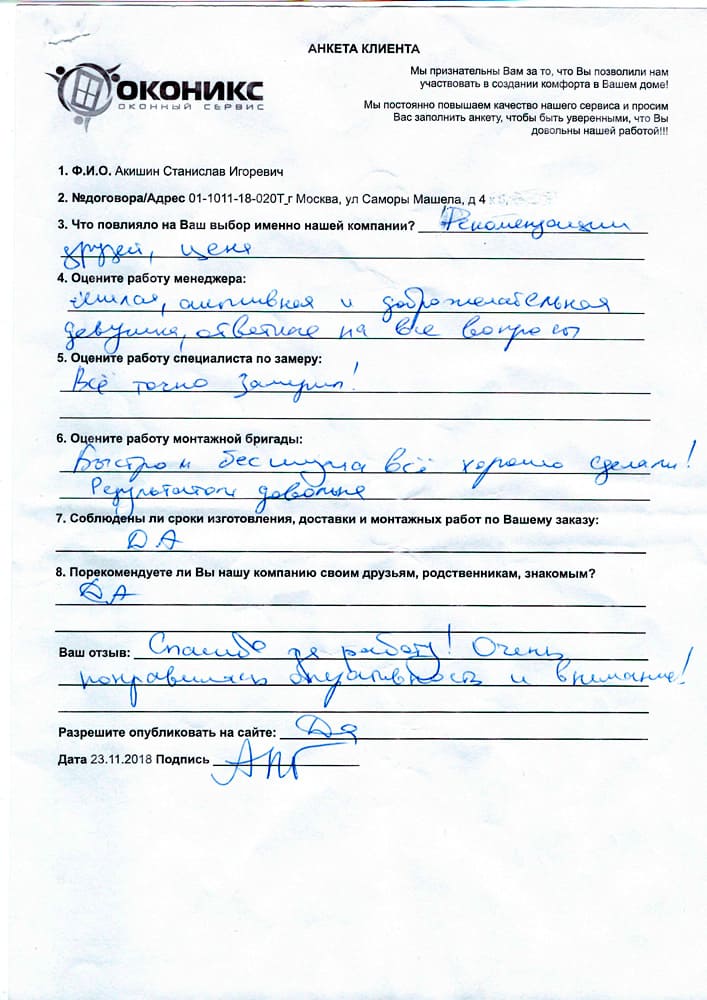 АНКЕТА КЛИЕНТА
ОКОНИКС
ОКОННЫЙ СЕРВИС
Мы признательны Вам за то, что Вы позволили нам
участвовать в создании комфорта в Вашем доме!
Мы постоянно повышаем качество нашего сервиса и просим
Вас заполнить анкету, чтобы быть уверенными, что Вы
довольны нашей работой!!!
1. Ф.И.О. Акишин Станислав Игоревич
2. №договора/Адрес 01-1011-18-020Т_г Москва, ул Саморы Машела, д 4
3. Что повлияло на Ваш выбор именно нашей компании? Рекомендации
друзей, цена
4. Оцените работу менеджера:
Милая, активная и доброжелательная
девушка, ответила на все вопросы
5. Оцените работу специалиста по замеру:
Всё точно замерил!
6. Оцените работу монтажной бригады:
Быстро и без шума всё хорошо сделали!
Результатом довольны
7. Соблюдены ли сроки изготовления, доставки и монтажных работ по Вашему заказу:
ДА
8. Порекомендуете ли Вы нашу компанию своим друзьям, родственникам, знакомым?
ДА
Ваш отзыв: Спасибо за работу! Очень
понравилась оперативность и внимание!
Разрешите опубликовать на сайте: Да
Дата 23.11.2018 Подпись